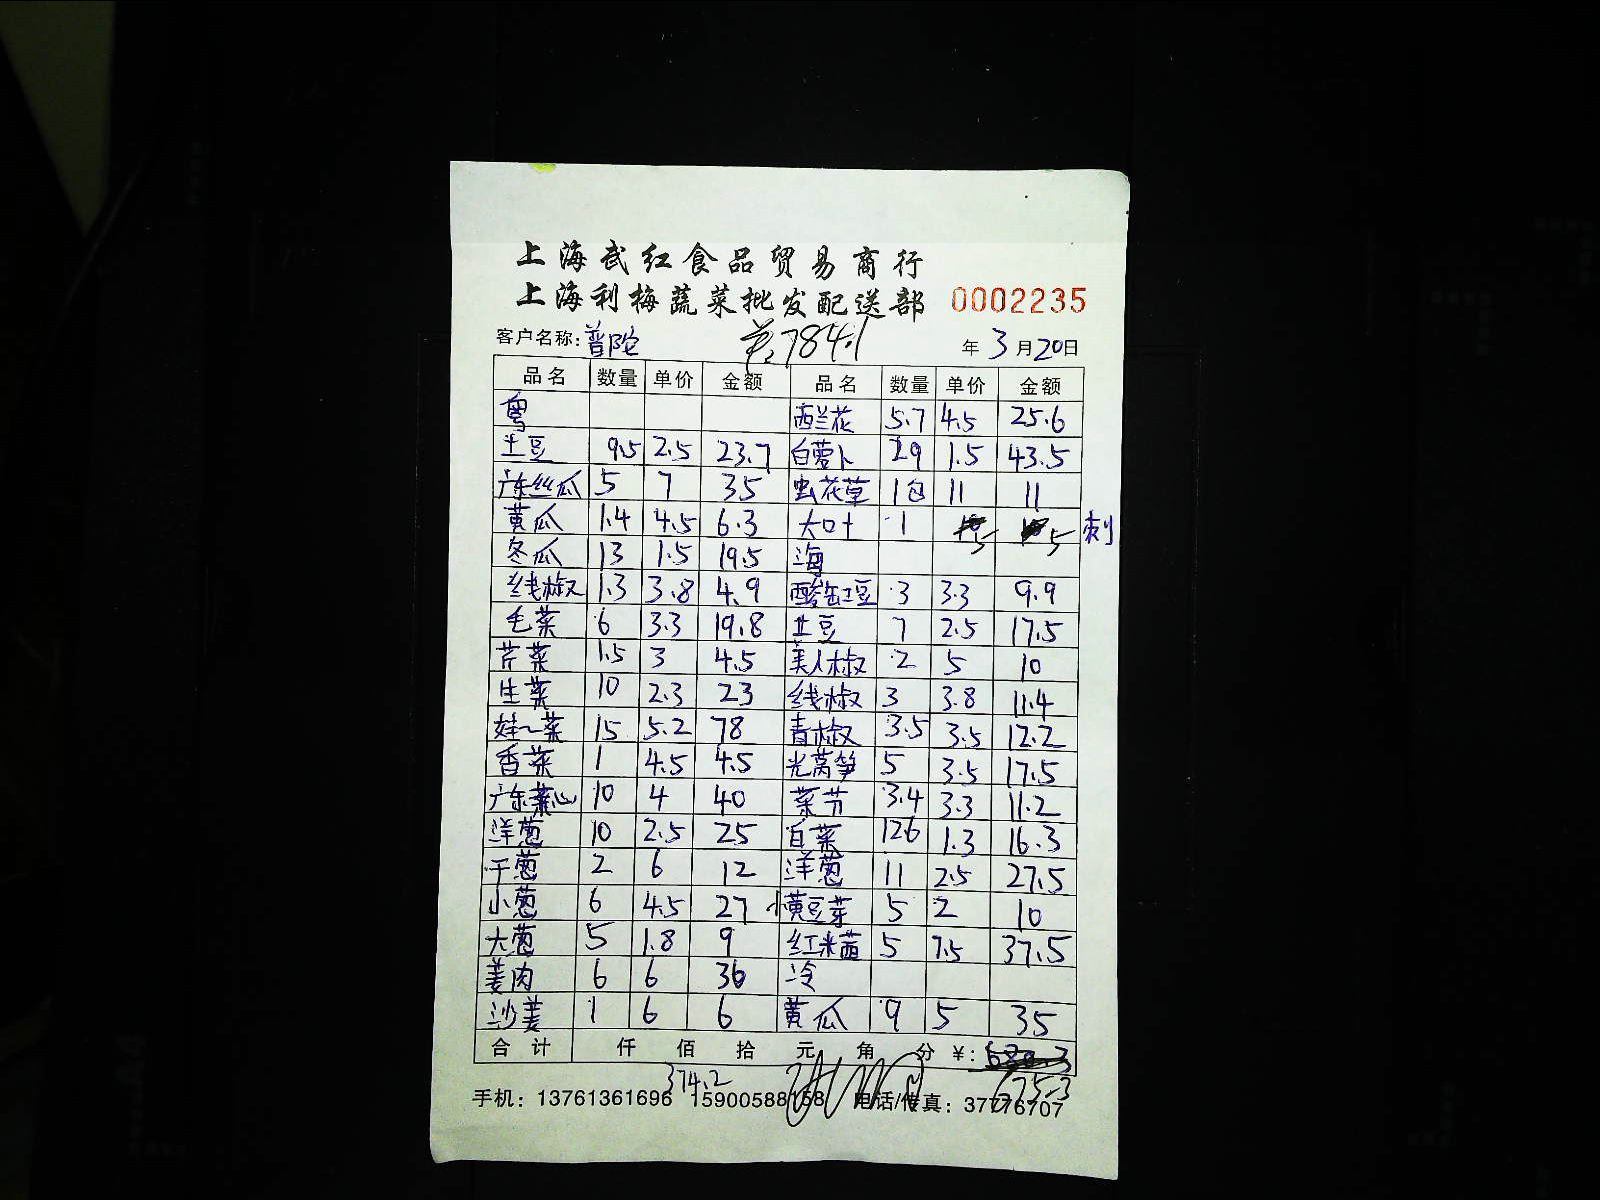 上海武红食品贸易商行
上海利梅蔬菜批发配送部 0002235
客户名称：普陀 ¥:784.1 年 3 月 20 日
品名 数量 单价 金额 品名 数量 单价 金额
粤 西兰花 5.7 4.5 25.6
土豆 9.5 2.5 23.7 白萝卜 29 1.5 43.5
广东丝瓜 5 7 35 虫花草 1包 11 11
黄瓜 1.4 4.5 6.3 大叶 1 5 5 刺
冬瓜 13 1.5 19.5 海
线椒 1.3 3.8 4.9 酸缸豆 3 3.3 9.9
毛菜 6 3.3 19.8 土豆 7 2.5 17.5
芹菜 1.5 3 4.5 美人椒 2 5 10
生菜 10 2.3 23 线椒 3 3.8 11.4
娃~菜 15 5.2 78 青椒 3.5 3.5 12.2
香菜 1 4.5 4.5 光莴笋 5 3.5 17.5
广东菜心 10 4 40 菜节 3.4 3.3 11.2
洋葱 10 2.5 25 白菜 126 1.3 16.3
干葱 2 6 12 洋葱 11 2.5 27.5
小葱 6 4.5 27 小黄豆芽 5 2 10
大葱 5 1.8 9 红米苋 5 7.5 37.5
姜肉 6 6 36 冷
沙姜 1 6 6 黄瓜 9 5 35
合计 仟 佰 拾 元 角 分 ¥:
374.2 675.3
手机：13761361696 15900588158 电话/传真：37776707